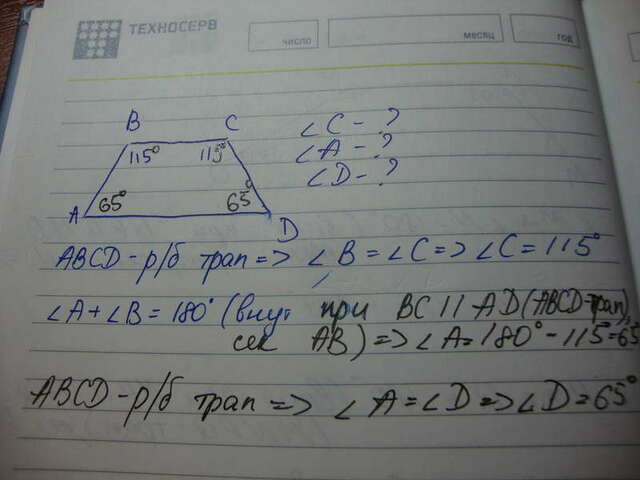 ТЕХНОСЕРВ
число
месяц
год
B C
115° 115°
65° 65°
A D
∠C - ?
∠A - ?
∠D - ?
ABCD - р/б трап => ∠B = ∠C => ∠C = 115°
∠A + ∠B = 180° (внут при BC || AD (ABCD-трап),
сек AB) => ∠A = 180° - 115° = 65°
ABCD - р/б трап => ∠A = ∠D => ∠D = 65°